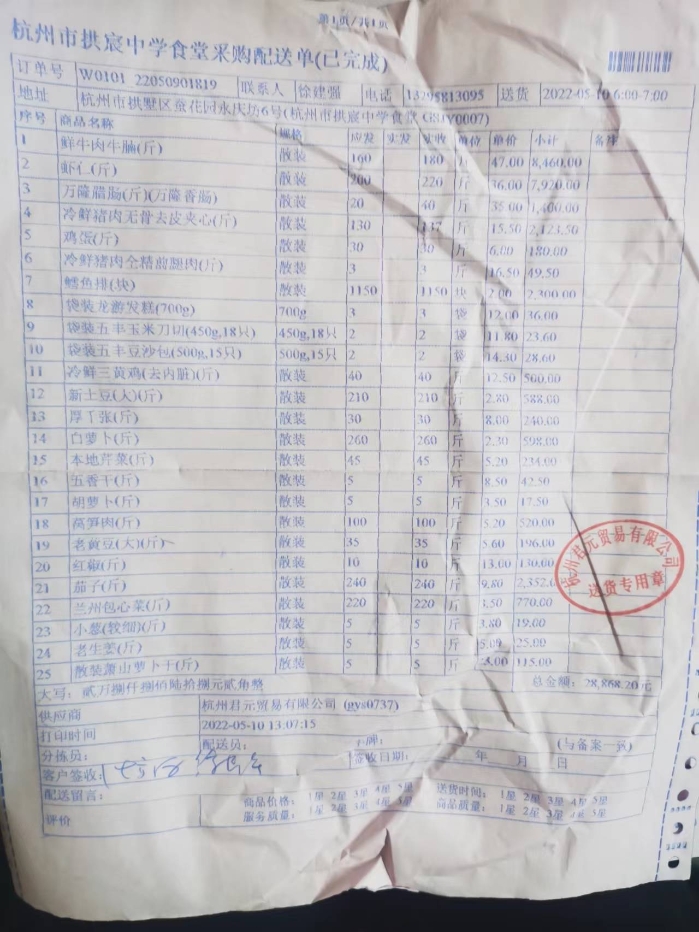 第1页/共1页
杭州市拱宸中学食堂采购配送单(已完成)
订单号 W0101_22050901819 联系人 徐建强 电话 13295813095 送货 2022-05-10 6:00-7:00
地址 杭州市拱墅区 花园永庆坊6号(杭州市拱宸中学食堂
序号 商品名称 规格 应发 实发 实收 单位 单价 小计 备注
1 鲜牛肉牛腩(斤) 散装 160 180 斤 47.00 8,460.00
2 虾仁(斤) 散装 200 220 斤 36.00 7,920.00
3 万隆腊肠(斤)(万隆香肠) 散装 20 40 斤 35.00 1,400.00
4 冷鲜猪肉无骨去皮夹心(斤) 散装 130 137 斤 15.50 2,123.50
5 鸡蛋(斤) 散装 30 30 斤 6.00 180.00
6 冷鲜猪肉全精前腿肉(斤) 散装 3 3 斤 16.50 49.50
7 鳕鱼排(块) 散装 1150 1150 块 2.00 2,300.00
8 袋装龙游发糕(700g) 700g 3 3 袋 12.00 36.00
9 袋装五丰玉米刀切(450g,18只) 450g,18只 2 2 袋 11.80 23.60
10 袋装五丰豆沙包(500g,15只) 500g,15只 2 2 袋 14.30 28.60
11 冷鲜三黄鸡(去内脏)(斤) 散装 40 40 斤 12.50 500.00
12 新土豆(大)(斤) 散装 210 210 斤 2.80 588.00
13 厚千张(斤) 散装 30 30 斤 8.00 240.00
14 白萝卜(斤) 散装 260 260 斤 2.30 598.00
15 本地芹菜(斤) 散装 45 45 斤 5.20 234.00
16 五香干(斤) 散装 5 5 斤 8.50 42.50
17 胡萝卜(斤) 散装 5 5 斤 3.50 17.50
18 莴笋肉(斤) 散装 100 100 斤 5.20 520.00
19 老黄豆(大)(斤) 散装 35 35 斤 5.60 196.00
20 红椒(斤) 散装 10 10 斤 13.00 130.00
21 茄子(斤) 散装 240 240 斤 9.80 2,352.
22 兰州包心菜(斤) 散装 220 220 斤 3.50 770.00
23 小葱(较细)(斤) 散装 5 5 斤 3.80 19.00
24 老生姜(斤) 散装 5 5 斤 5.00 25.00
25 散装萧山萝卜干(斤) 散装 5 5 斤 115.00
杭州君元贸易有限公司
送货专用章
大写: 贰万捌仟捌佰陆拾捌元贰角整 总金额: 28,868.20元
供应商 杭州君元贸易有限公司 (gys0737)
打印时间 2022-05-10 13:07:15
分拣员: 配送员: 车牌: (与备案一致)
客户签收: 签收日期: 年 月 日
配送留言:
评价 商品价格: 1星 2星 3星 4星 5星 送货时间: 1星 2星 3星 4星 5星
服务质量: 1星 2星 3星 4星 5星 商品质量: 1星 2星 3星 4星 5星